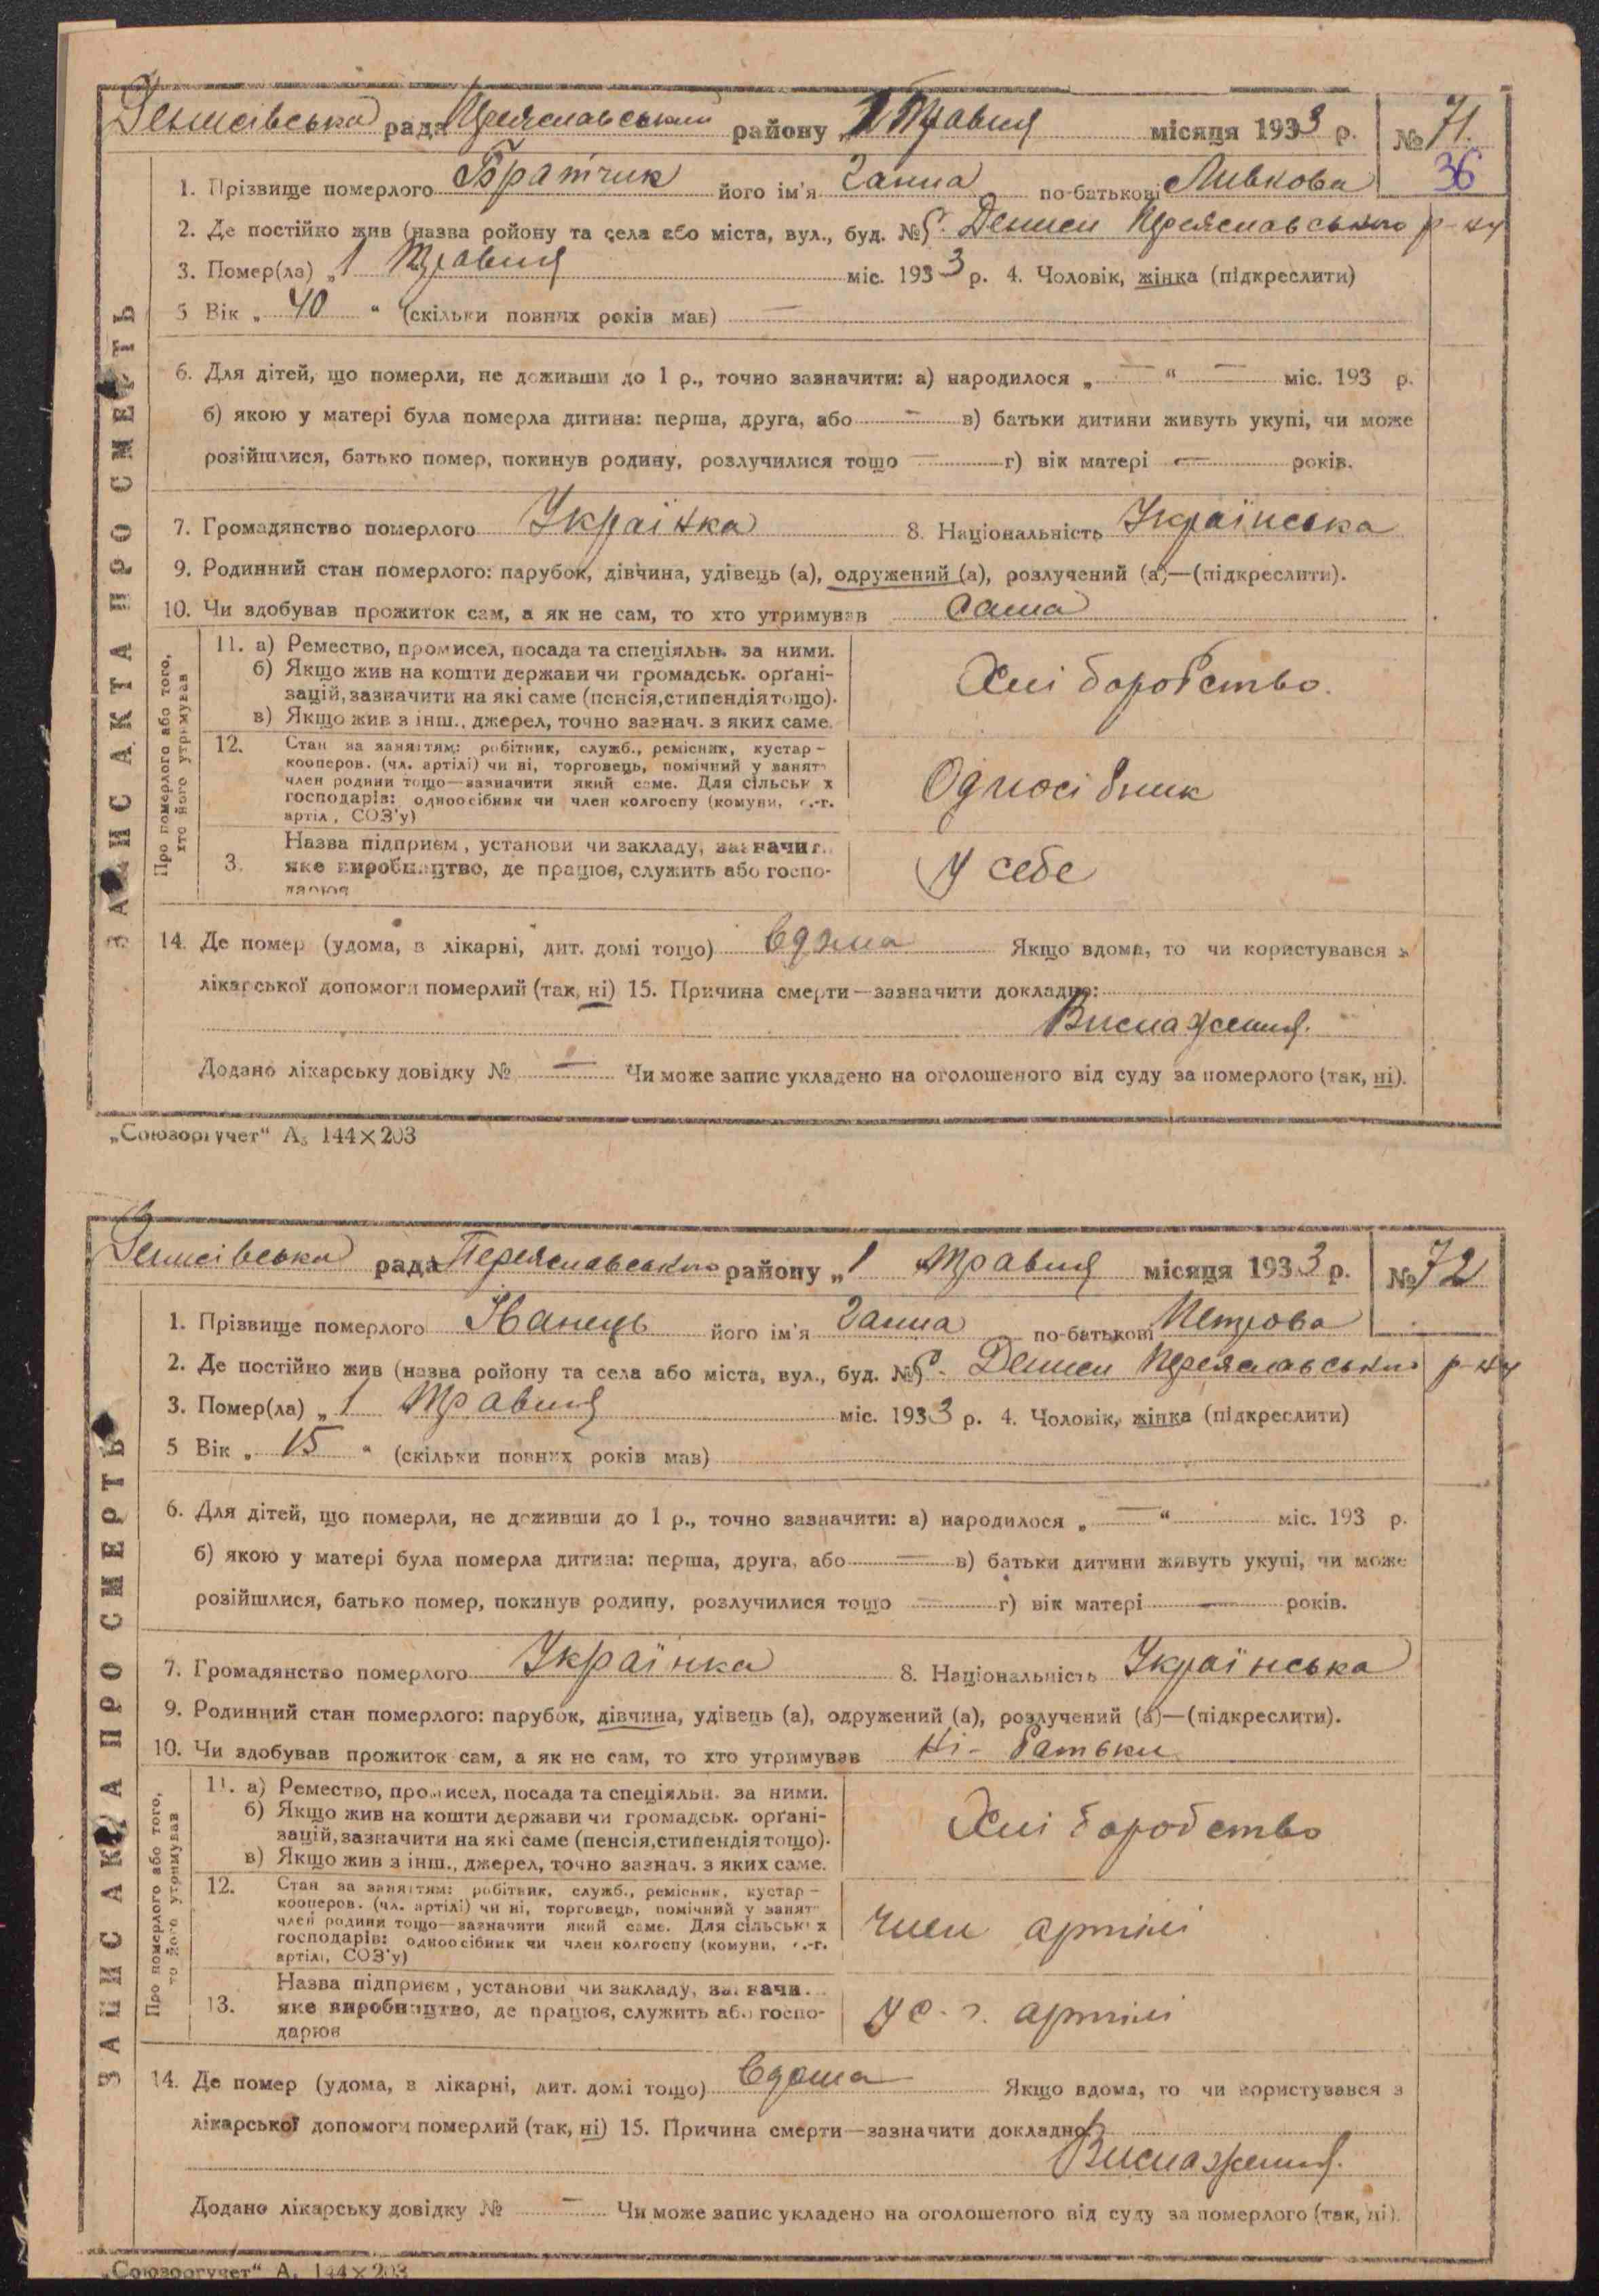 Денисівська рада Переяславський району „1 Травня місяця 1933 р. № 71.
36
1. Прізвище померлого Братчик його ім'я Ганна по-батькові Ливкова
2. Де постійно жив (назва ройону та села або міста, вул., буд. № С. Дениси Переяславського р-ну
3. Помер(ла) „1 Травня міс. 1933 р. 4. Чоловік, жінка (підкреслити)
5 Вік „ 40 “ (скільки повних років мав) —
6. Для дітей, що померли, не доживши до 1 р., точно зазначити: а) народилося „ — “ — міс. 193 р.
б) якою у матері була померла дитина: перша, друга, або — в) батьки дитини живуть укупі, чи може
розійшлися, батько помер, покинув родину, розлучилися тощо — г) вік матері — років.
7. Громадянство померлого Українка 8. Національність Українська
9. Родинний стан померлого: парубок, дівчина, удівець (а), одружений (а), розлучений (а)—(підкреслити).
10. Чи здобував прожиток сам, а як не сам, то хто утримував Сама
ЗАПИС АКТА ПРО СМЕРТЬ
Про померлого або того,
хто його утримував
11. а) Ремество, промисел, посада та спеціяльн. за ними.
б) Якщо жив на кошти держави чи громадськ. орґані-
зацій, зазначити на які саме (пенсія, стипендія тощо).
в) Якщо жив з інш., джерел, точно зазнач. з яких саме.
Хліборобство.
12. Стан за заняттям: робітник, служб., ремісник, кустар –
кооперов. (чл. артілі) чи ні, торговець, помічний у занят
член родини тощо—зазначити який саме. Для сільськ х
господарів: одноосібник чи член колгоспу (комуни, с.-г.
артіл , СОЗ'у)
Односібник
3. Назва підприєм , установи чи закладу, зазначит.
яке виробництво, де працює, служить або госпо-
дарює
У себе
14. Де помер (удома, в лікарні, дит. домі тощо) Вдома Якщо вдома, то чи користувався з
лікарської допомоги померлий (так, ні) 15. Причина смерти—зазначити докладно:
Виснаження.
Додано лікарську довідку № — Чи може запис укладено на оголошеного від суду за померлого (так, ні).
„Союзоргучет“ А₅ 144×203
Денисівська рада Переяславського району „1 Травня місяця 1933 р. № 72
1. Прізвище померлого Іванець його ім'я Ганна по-батькові Петрова
2. Де постійно жив (назва ройону та села або міста, вул., буд. № С. Дениси Переяславського р-ну
3. Помер(ла) „1 Травня міс. 1933 р. 4. Чоловік, жінка (підкреслити)
5 Вік „ 15 “ (скільки повних років мав)
6. Для дітей, що померли, не доживши до 1 р., точно зазначити: а) народилося „ — “ міс. 193 р.
б) якою у матері була померла дитина: перша, друга, або — в) батьки дитини живуть укупі, чи може
розійшлися, батько помер, покинув родину, розлучилися тощо — г) вік матері — років.
7. Громадянство померлого Українка 8. Національність Українська
9. Родинний стан померлого: парубок, дівчина, удівець (а), одружений (а), розлучений (а)—(підкреслити).
10. Чи здобував прожиток сам, а як не сам, то хто утримував Ні - батьки
ЗАПИС АКТА ПРО СМЕРТЬ
Про померлого або того,
то його утримував
11. а) Ремество, промисел, посада та спеціяльн. за ними.
б) Якщо жив на кошти держави чи громадськ. орґані-
зацій, зазначити на які саме (пенсія, стипендія тощо).
в) Якщо жив з інш., джерел, точно зазнач. з яких саме.
Хліборобство
12. Стан за заняттям: робітник, служб., ремісник, кустар –
кооперов. (чл. артілі) чи ні, торговець, помічний у занят
член родини тощо—зазначити який саме. Для сільськ х
господарів: одноосібник чи член колгоспу (комуни, с.-г.
артілі, СОЗ'у)
член артілі
13. Назва підприєм , установи чи закладу, зазначи.
яке виробництво, де працює, служить або госпо-
дарює
У с. г. артілі
14. Де помер (удома, в лікарні, дит. домі тощо) Вдома Якщо вдома, то чи користувався з
лікарської допомоги померлий (так, ні) 15. Причина смерти—зазначити докладно:
Виснаження.
Додано лікарську довідку № — Чи може запис укладено на оголошеного від суду за померлого (так, ні).
„Союзоргучет“ А₅ 144×203